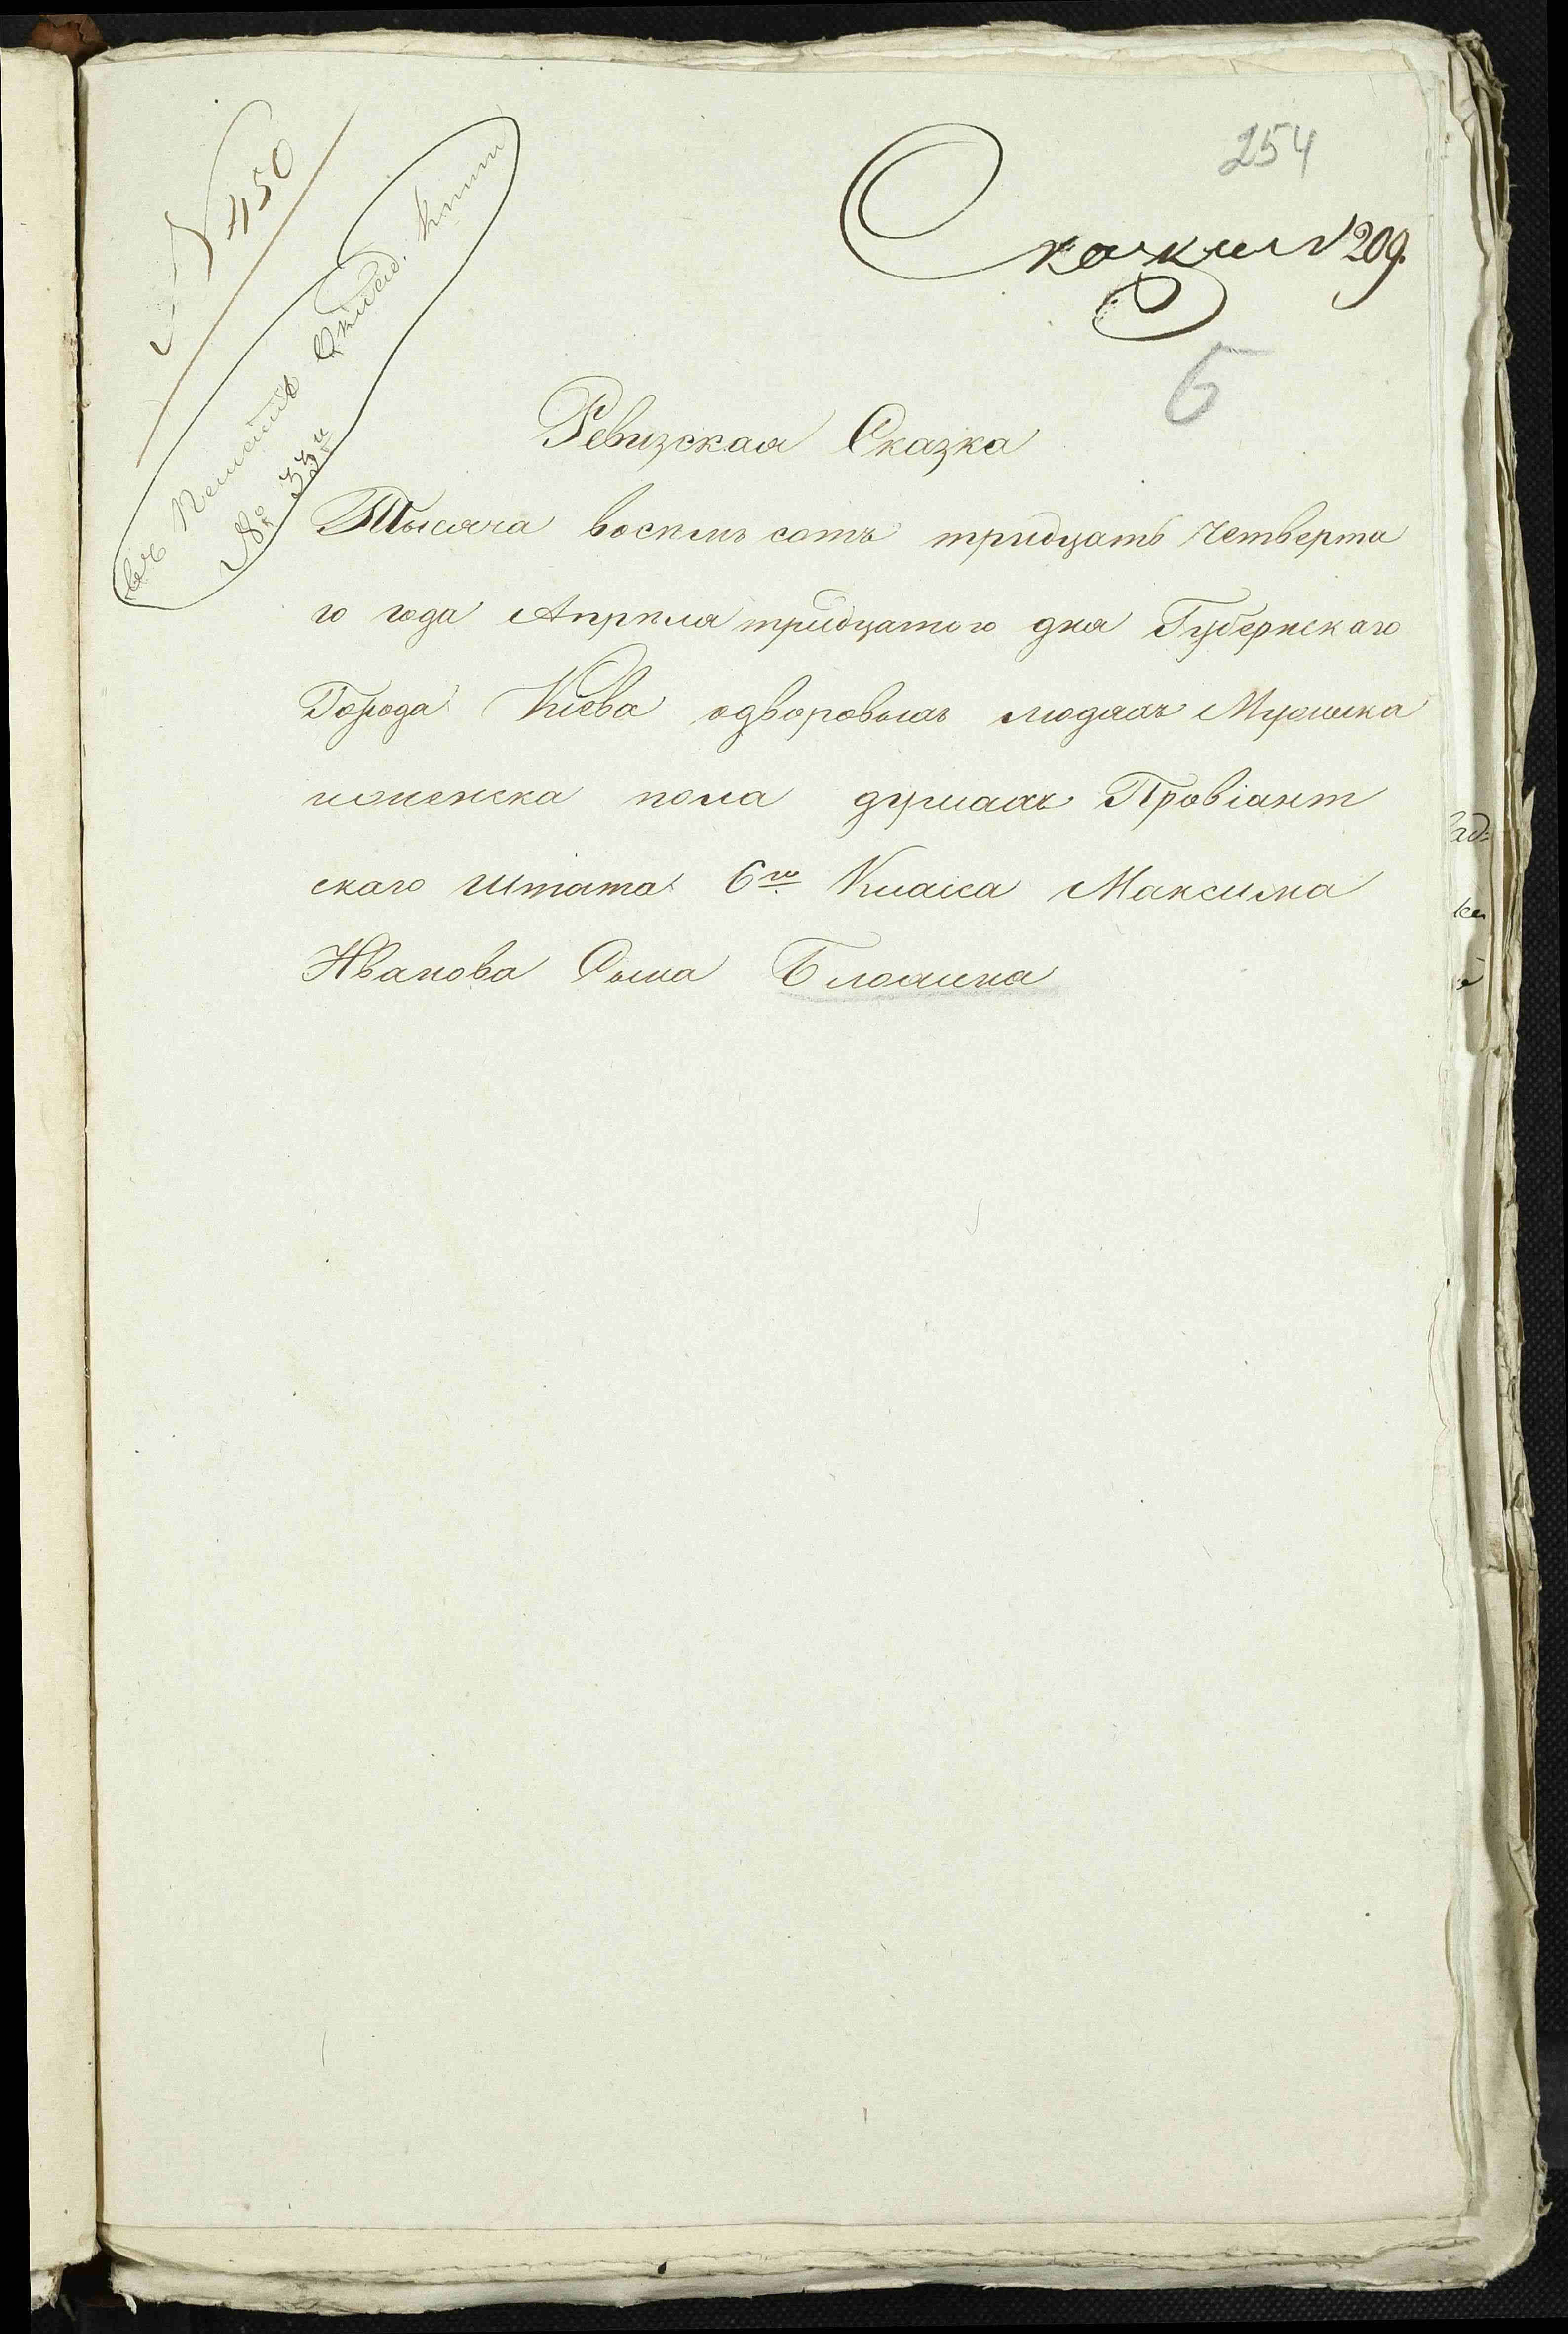 № 450
254
Сказки № 209.
6
№ 33й
Ревизская Сказка
Тысяча восемь сотъ тридцать четверта
го года Апреля тридцатого дня Губернскаго
Города Киева одворовыхъ людяхъ Мужеска
иженска пола душахъ Провіант
скаго штата 6го Класса Максима
Иванова Сына